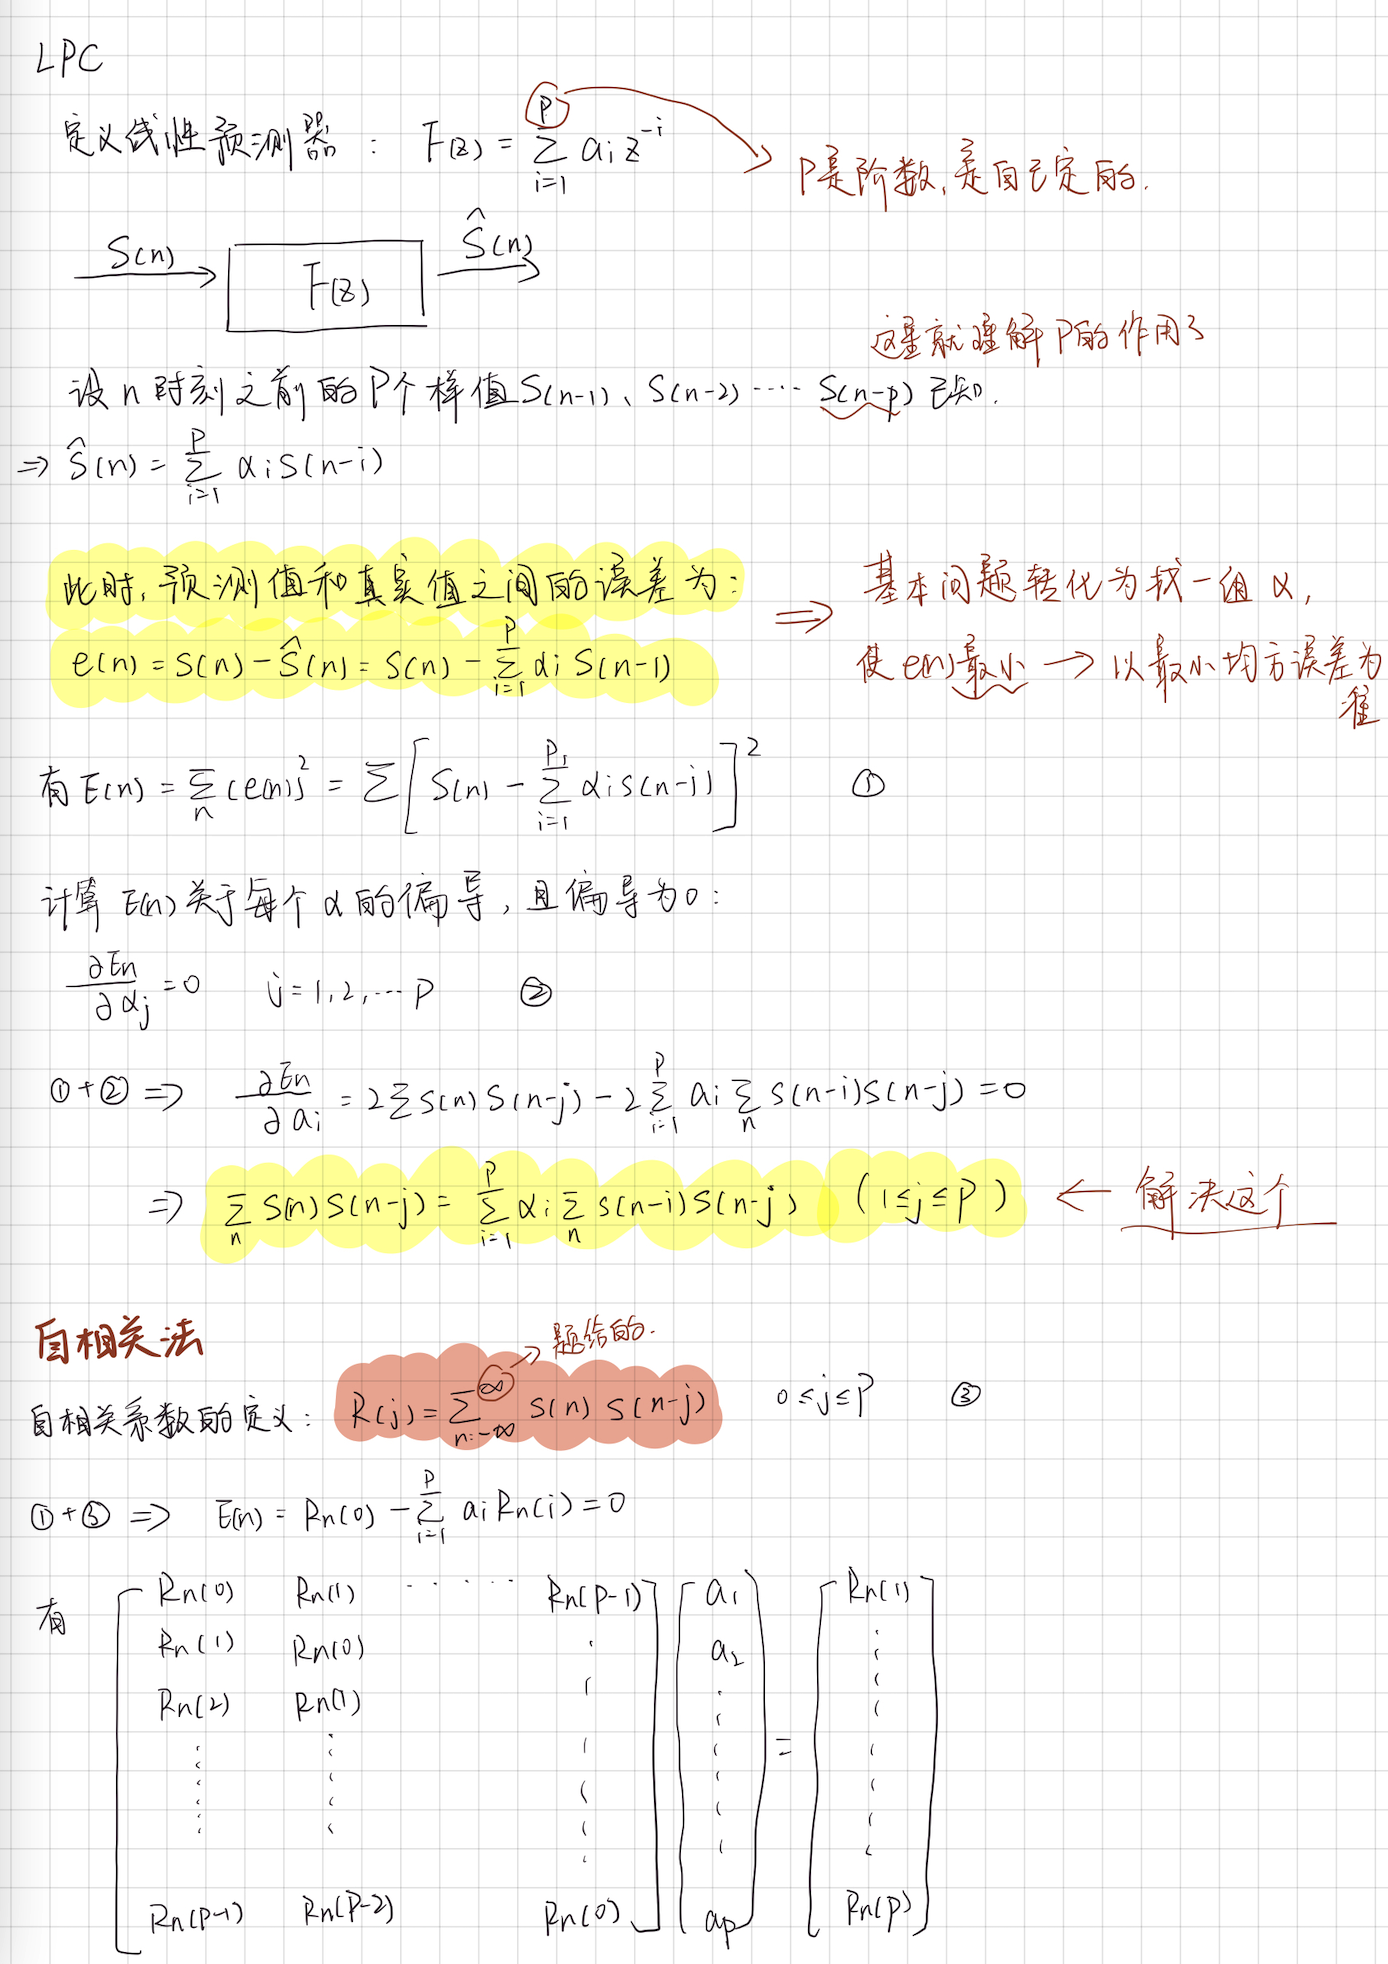 LPC
定义线性预测器: F(z) = \sum_{i=1}^{P} a_i z^{-i}
P是阶数,是自己定的.
S(n) F(z) \hat{S}(n)
这里就理解P的作用了
设n时刻之前的P个样值S(n-1)、S(n-2)····· S(n-p)已知.
⇒ \hat{S}(n) = \sum_{i=1}^{P} α_i S(n-i)
此时,预测值和真实值之间的误差为:
e(n) = s(n) - \hat{S}(n) = S(n) - \sum_{i=1}^{P} α_i S(n-1)
⇒ 基本问题转化为找一组α,
使e(n)最小 → 以最小均方误差为
准
有 E(n) = \sum_n (e(n))^2 = \sum [S(n) - \sum_{i=1}^{P} α_i s(n-i)]^2 ①
计算E(n)关于每个α的偏导,且偏导为0:
\frac{∂En}{∂α_j} = 0 j=1,2,···P ②
①+② ⇒ \frac{∂En}{∂a_i} = 2\sum S(n)S(n-j) - 2\sum_{i=1}^{P} a_i \sum_n s(n-i)s(n-j) = 0
⇒ \sum_n S(n)S(n-j) = \sum_{i=1}^{P} α_i \sum_n s(n-i)S(n-j) (1≤j≤P) ← 解决这个
自相关法
→ 题给的.
自相关系数的定义: R(j) = \sum_{n=-∞}^{∞} s(n) s(n-j) 0≤j≤P ③
①+③ ⇒ E(n) = Rn(0) - \sum_{i=1}^{P} a_i Rn(i) = 0
有 Rn(0) Rn(1) ······ Rn(P-1) a_1 Rn(1)
Rn(1) Rn(0) a_2
Rn(2) Rn(1)
=
Rn(P-1) Rn(P-2) Rn(0) a_p Rn(p)